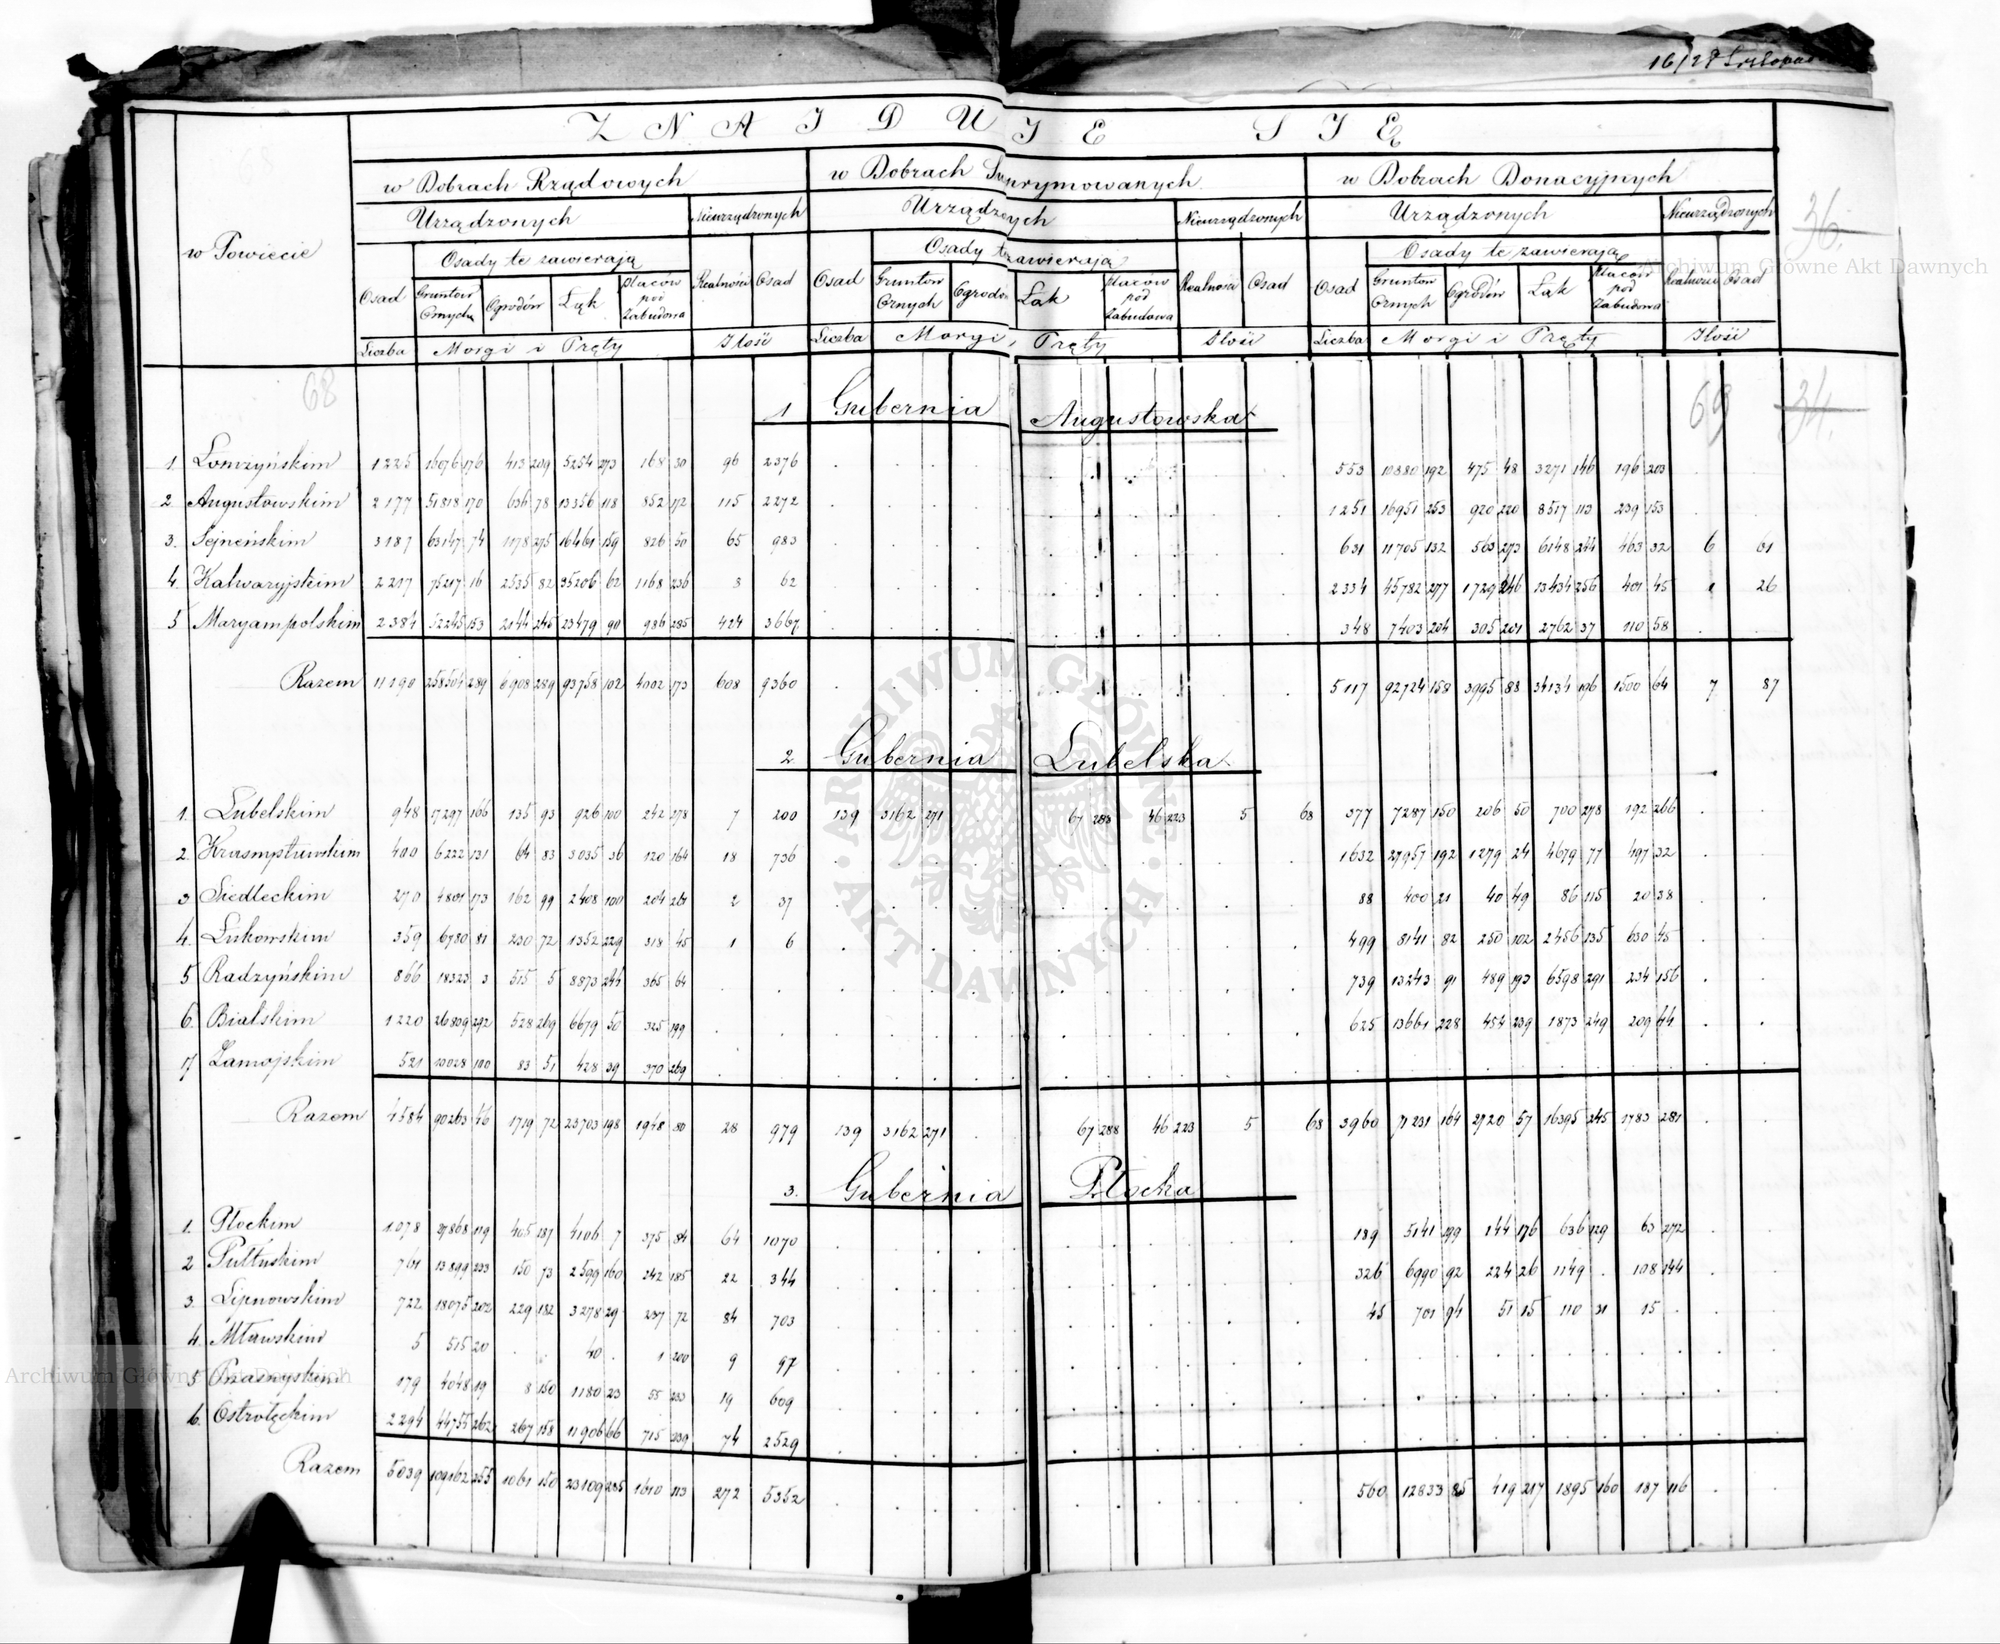 16/28 Listopada
ZNAJDUJE SIĘ
w Powiecie
w Dobrach Rządowych
w Dobrach Supprymowanych
w Dobrach Donacyjnych
Urządzonych Nieurządzonych Urządzonych Nieurządzonych Urządzonych Nieurządzonych
Osady te zawierają Osady te zawierają Osady te zawierają
Osad Gruntów Ornych Ogrodów Łąk Placów pod Zabudowa Realności Osad Osad Gruntów Ornych Ogrodów Łąk Placów pod Zabudowa Realności Osad Osad Gruntów Ornych Ogrodów Łąk Placów pod Zabudowa Realności Osad
Liczba Morgi i Pręty Ilość Liczba Morgi i Pręty Ilość Liczba Morgi i Pręty Ilość
36.
68
69
34.
1 Gubernia Augustowska
1. Łomżyńskim 1225 16076 176 413 209 5254 273 168 30 96 2376 553 10880 192 475 48 3271 146 196 203
2 Augustowskim 2177 51818 170 636 78 13356 118 852 172 115 2272 1251 16951 253 920 220 8517 113 239 153
3. Sejneńskim 3187 63147 74 1178 275 16461 159 826 50 65 983 631 11705 132 563 273 6148 244 463 32 6 61
4. Kalwaryjskim 2217 75217 16 2535 82 35206 62 1168 236 3 62 2334 45782 277 1729 246 13434 256 401 45 1 26
5 Maryampolskim 2384 52245 153 2144 245 23479 90 986 285 424 3667 348 7403 204 305 201 2762 37 110 58
Razem 11190 258504 289 6908 289 93758 102 4002 173 608 9360 5117 92724 158 3995 88 34134 196 1500 64 7 87
2. Gubernia Lubelska
1. Lubelskim 948 17297 166 135 93 926 100 242 278 7 200 139 3162 271 67 288 46 223 5 68 377 7287 150 206 50 700 278 192 266
2. Krasnystawskim 400 6222 131 64 83 3035 36 120 164 18 736 1632 27957 192 1279 24 4679 77 497 32
3 Siedleckim 270 4801 173 162 99 2408 100 204 261 2 37 88 400 21 40 49 86 115 20 38
4. Łukowskim 359 6780 81 230 72 1352 229 318 45 1 6 499 8141 82 250 102 2456 135 630 45
5 Radzyńskim 866 18323 3 515 5 8873 244 365 64 739 13243 91 489 193 6598 291 234 156
6. Bialskim 1220 26809 292 528 269 6679 50 325 199 625 13661 228 454 239 1873 249 209 44
7 Zamojskim 521 10028 100 83 51 428 39 370 269
Razem 4584 90263 46 1719 72 23703 198 1948 80 28 979 139 3162 271 67 288 46 223 5 68 3960 71231 164 2720 57 16395 245 1783 281
3. Gubernia Płocka
1. Płockim 1078 27868 119 405 187 4106 7 375 84 64 1070 189 5141 199 144 176 636 129 63 272
2 Pułtuskim 761 13899 233 150 73 2599 160 242 185 22 344 326 6990 92 224 26 1149 108 144
3. Lipnowskim 722 18075 202 229 182 3278 29 237 72 84 703 45 701 94 51 15 110 31 15
4. Mławskim 5 515 20 40 1 200 9 97
5 Przasnyskim 179 4048 19 8 150 1180 23 55 233 19 609
6. Ostrołęckim 2294 44755 262 267 158 11906 66 715 239 74 2529
Razem 5039 109162 255 1061 150 23109 285 1610 113 272 5352 560 12833 85 419 217 1895 160 187 116
Archiwum Główne Akt Dawnych
ARCHIWUM GŁÓWNE AKT DAWNYCH
Archiwum Główne Akt Dawnych